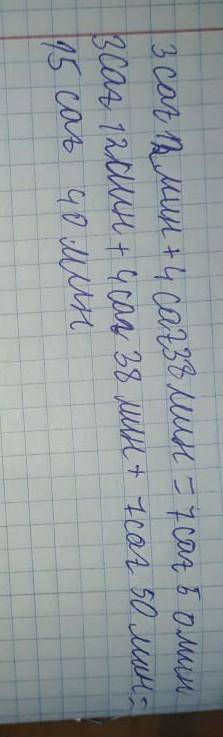 3 сағ 12 мин + 4 сағ 38 мин = 7 сағ 50 мин
3 сағ 12 мин + 4 сағ 38 мин + 7 сағ 50 мин =
15 сағ 40 мин